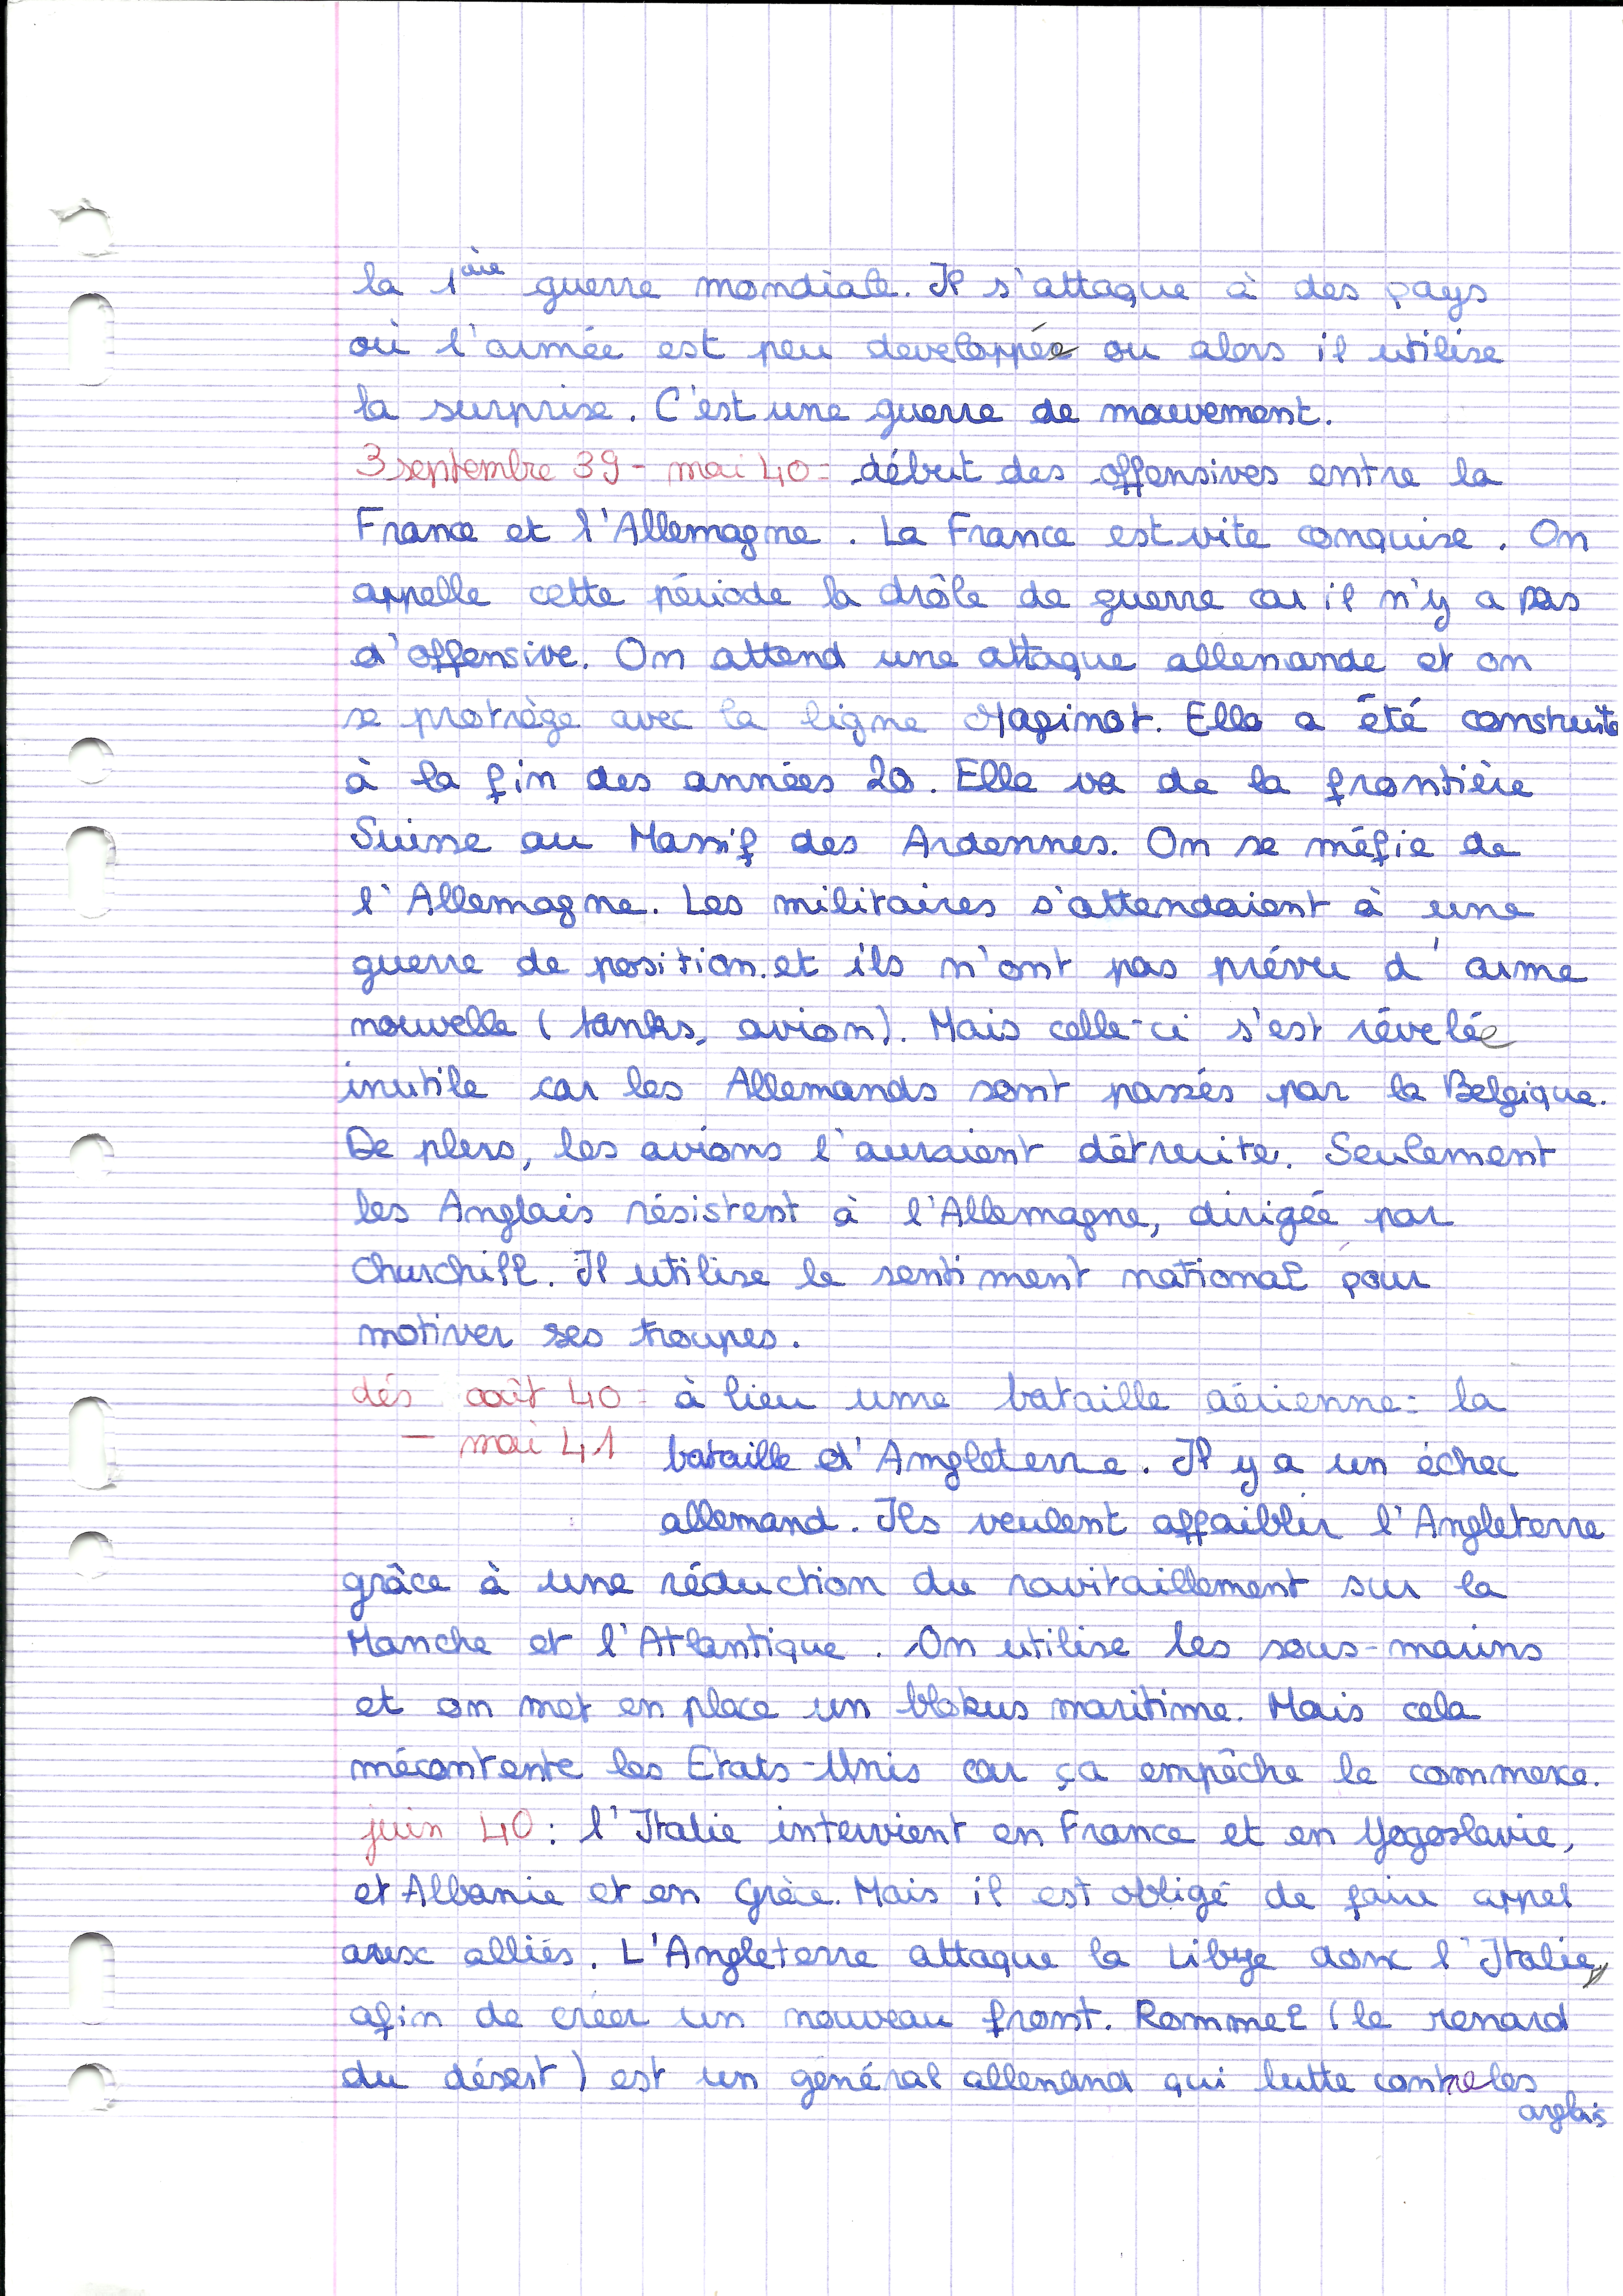 la 1ère guerre mondiale. Il s'attaque à des pays
où l'armée est peu developpée ou alors il utilise
la surprise. C'est une guerre de mouvement.
3 septembre 39 - mai 40 : début des offensives entre la
France et l'Allemagne. La France est vite conquise. On
appelle cette période la drôle de guerre car il n'y a pas
d'offensive. On attend une attaque allemande et on
se protrège avec la ligne Maginot. Elle a été construite
à la fin des années 20. Elle va de la frontière
Suisse au Massif des Ardennes. On se méfie de
l'Allemagne. Les militaires s'attendaient à une
guerre de position et ils n'ont pas prévu d'arme
nouvelle (tanks, avion). Mais celle-ci s'est révelée
inutile car les Allemands sont passés par la Belgique.
De plus, les avions l'auraient détruite. Seulement
les Anglais résistent à l'Allemagne, dirigée par
Churchill. Il utilise le sentiment national pour
motiver ses troupes.
dés août 40 : à lieu une bataille aérienne : la
- mai 41 bataille d'Angleterre. Il y a un échec
allemand. Ils veulent affaiblir l'Angleterre
grâce à une réduction du ravitaillement sur la
Manche et l'Atlantique. On utilise les sous-marins
et on met en place un blokus maritime. Mais cela
mécontente les Etats-Unis car ça empêche le commerce.
juin 40 : l'Italie intervient en France et en Yogoslavie,
et Albanie et en Grèce. Mais il est obligé de faire appel
aux alliés. L'Angleterre attaque la Libye donc l'Italie,
afin de créer un nouveau front. Rommel (le renard
du désert) est un général allemand qui lutte contre les
anglais